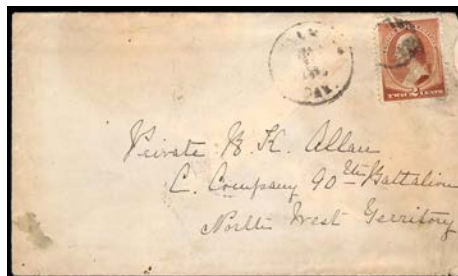 TWO 2 CENTS
Private W. K. Allan
C. Company 90th Battalion
North West Territory